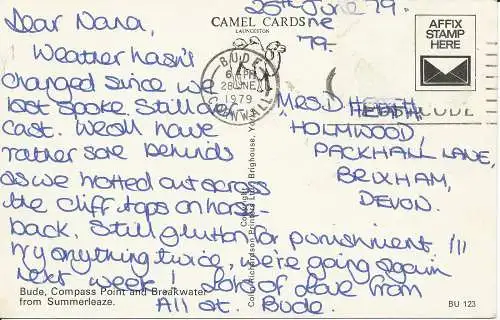 25th June 79.
Dear Nana,
Weather hasn't
changed since we
last spoke. Still over
cast. We all have
rather sore behinds
as we trotted out across
the cliff tops on horse-
back. Still glutton for punishment !!!
try anything twice, we're going again
next week! Lots of love from
All at. Bude.
CAMEL CARDS
LAUNCESTON
ne
79.
BUDE
6 PM
28 JNE
1979
CORNWALL
AFFIX
STAMP
HERE
MRS D
HOLMWOOD,
PACKHALL LANE,
BRIXHAM,
DEVON.
Colin Richardson Printers Ltd., Brighouse,
Bude, Compass Point and Breakwater
from Summerleaze.
BU 123